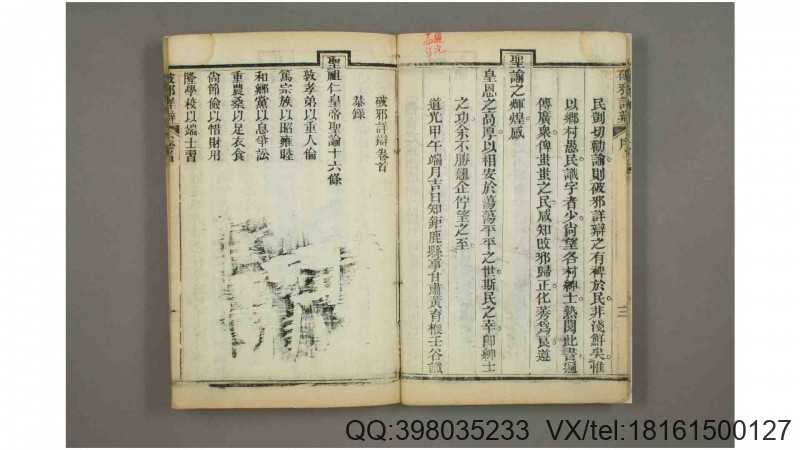 民剀切勸諭則破邪詳辯之有裨於民非淺鮮矣惟
以鄉村愚民識字者少尚望各村紳士熱閱此書遍
傳廣衆俾蚩蚩之民咸知改邪歸正化莠爲良遵
聖諭之輝煌感
皇恩之高厚以相安於蕩蕩平平之世斯民之幸卽紳士
之功余不勝翹企佇望之至
道光甲午端月吉日知鉅鹿縣事甘肅黃育楩壬谷識
三
破邪詳辯卷首
恭錄
聖祖仁皇帝聖諭十六條
敦孝弟以重人倫
篤宗族以昭雍睦
和鄉黨以息爭訟
重農桑以足衣食
尚節儉以惜財用
隆學校以端士習
QQ:398035233 VX/tel:18161500127